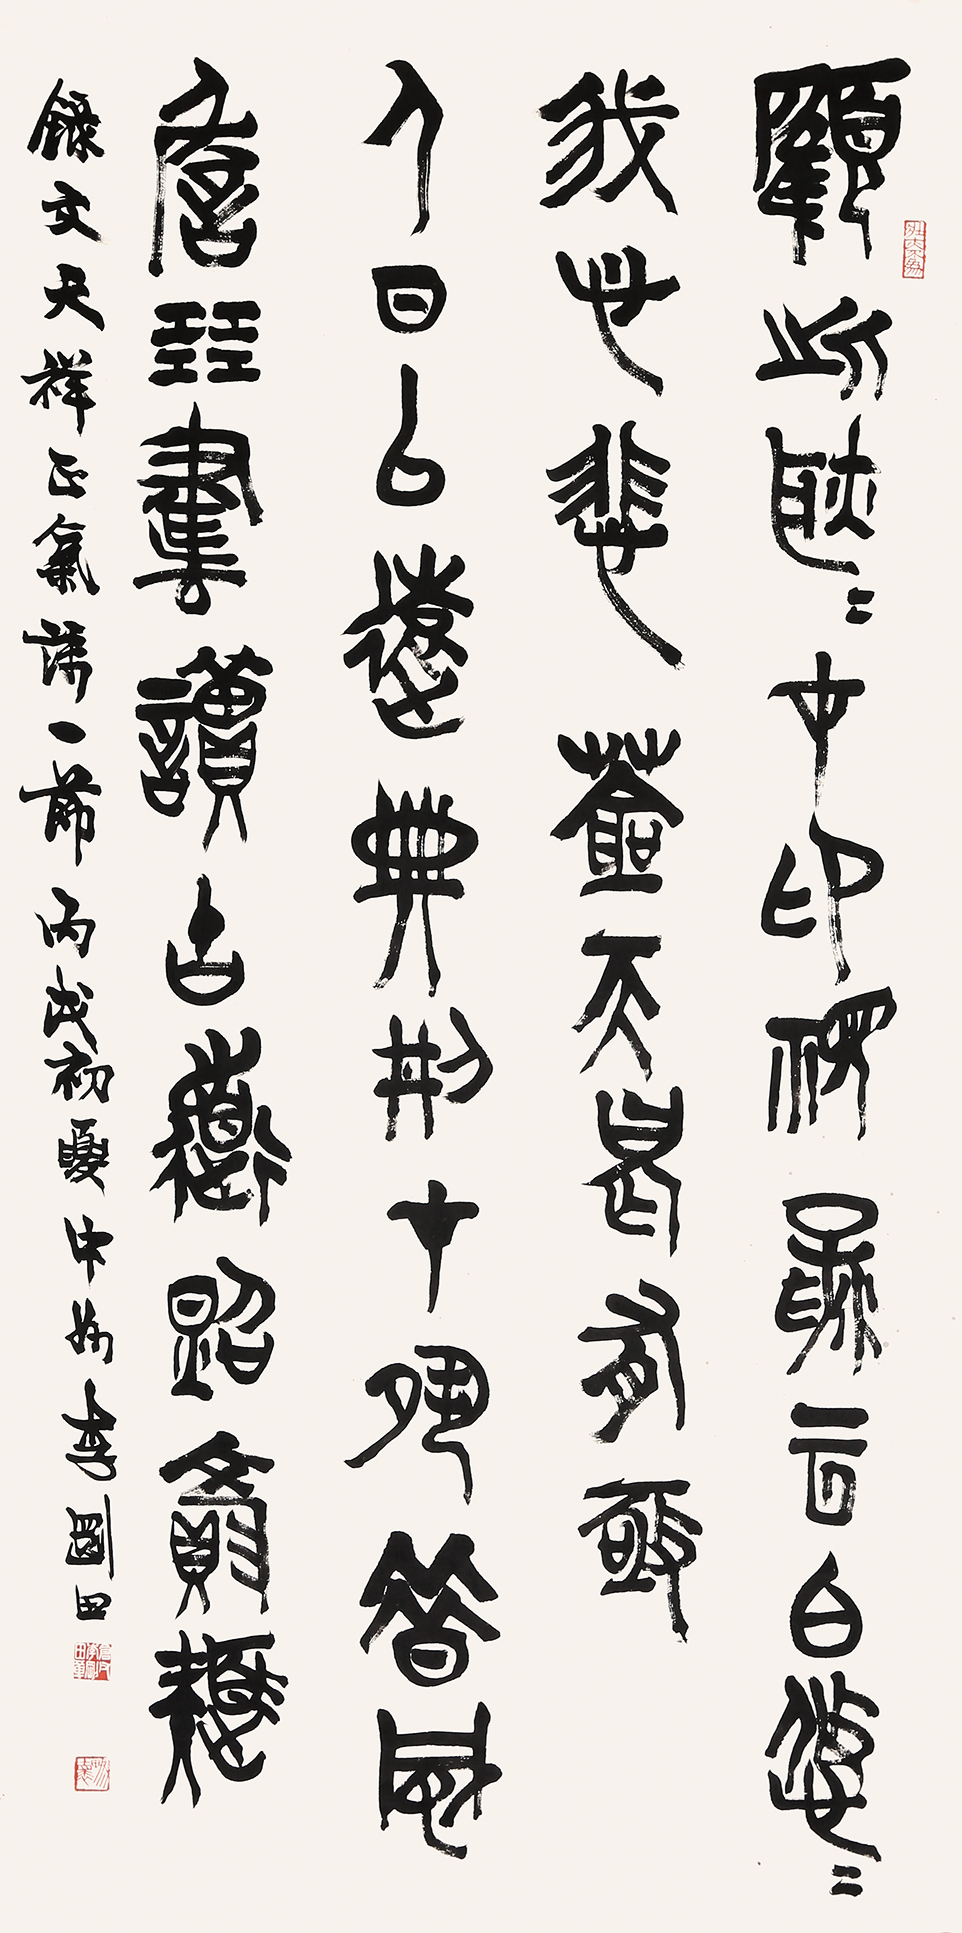 顧此耿耿在仰視浮云白悠悠
我心悲蒼天曷有極
人日已遠典刑在夙昔風
簷展書讀古道照顏色
錄文天祥正氣歌一節丙戌初夏中州李剛田